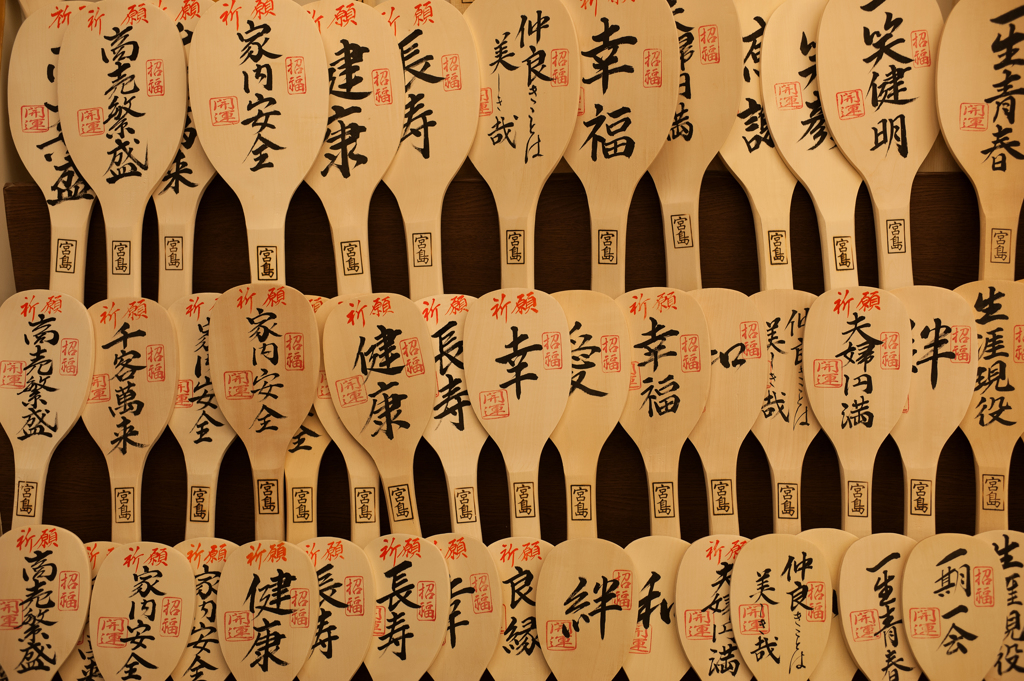 祈願
祈願 商売繁盛 招福 開運 宮島
祈願 家内安全 招福 開運 宮島
祈願 健康 招福 宮島
祈願 長寿 招福 宮島
仲良きことは 美しき哉 招福 宮島
祈願 幸福 招福 宮島
夫婦円満 招福 宮島
宮島
開運 宮島
一笑健明 招福 開運 宮島
一生青春 開運 宮島
祈願 商売繁盛 招福 開運 宮島
祈願 千客萬来 招福 開運 宮島
祈願 家内安全 宮島
祈願 家内安全 招福 開運 宮島
宮島
宮島
祈願 健康 招福 開運 宮島
祈願 長寿 宮島
祈願 幸 招福 開運 宮島
愛 招福 宮島
祈願 幸福 招福 宮島
招福 宮島
仲良きことは 美しき哉 宮島
祈願 夫婦円満 招福 開運 宮島
絆 招福 宮島
生涯現役 宮島
祈願 商売繁盛 招福 開運
祈願 家内安全 招福 開運
祈願 家内安全
祈願 健康 招福 開運
祈願 長寿 招福
祈願 長寿 招福
祈願 幸 招福
祈願 良縁
絆 招福 開運
和 開運
祈願 夫婦円満 開運
仲良きことは 美しき哉 招福 開運
一生青春 開運
一期一会 招福 開運
生涯現役